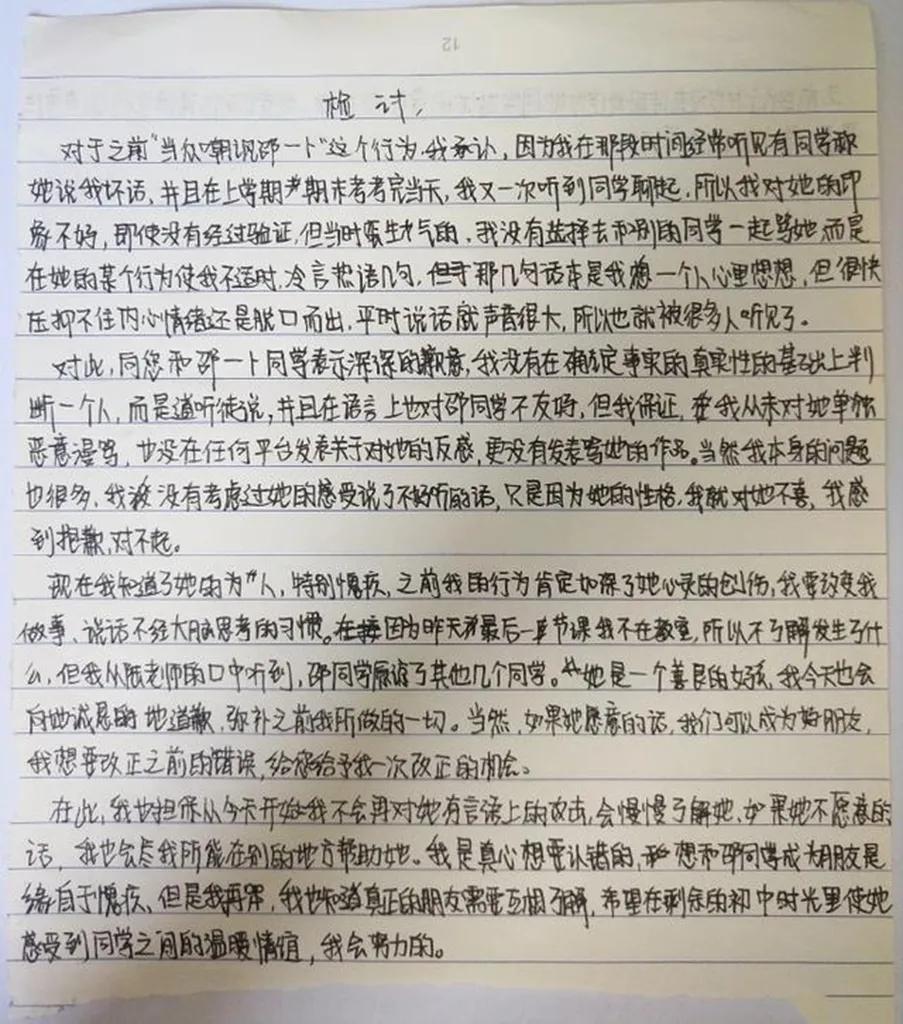 12
检讨,
对于之前"当众嘲讽邵一卜"这个行为,我承认,因为我在那段时间经常听见有同学称
她说我坏话,并且在上学期期末考考完当天,我又一次听到同学聊起,所以我对她的印
象不好,即使没有经过验证,但当时蛮生气的,我没有选择去和别的同学一起骂她,而是
在她的某个行为使我不适时,冷言热语几句,但那几句话本是我想一个人心里想想,但很快
压抑不住内心情绪还是脱口而出,平时说话就声音很大,所以也就被很多人听见了。
对此,同您和邵一卜同学表示深深的歉意,我没有在确定事实的真实性的基础上判
断一个人,而是道听徒说,并且在语言上也对邵同学不友好,但我保证,我从未对她单独
恶意谩骂,也没在任何平台发表关于对她的反感,更没有发表骂她的作品。当然我本身的问题
也很多,我没有考虑过她的感受说了不好听的话,只是因为她的性格,我就对她不喜,我感
到抱歉,对不起。
现在我知道了她的为人,特别愧疚,之前我的行为肯定加深了她心灵的创伤,我要改变我
做事、说话不经大脑思考的习惯。因为昨天最后一节课我不在教室,所以不了解发生了什
么,但我从阮老师的口中听到,邵同学原谅了其他几个同学。她是一个善良的女孩,我今天也会
向她诚恳的地道歉,弥补之前我所做的一切。当然,如果她愿意的话,我们可以成为好朋友,
我想要改正之前的错误,给您给予我一次改正的机会。
在此,我也担保从今天开始我不会再对她有言语上的攻击,会慢慢了解她,如果她不愿意的
话,我也会尽我所能在别的地方帮助她。我是真心想要认错的,想和邵同学成为朋友是
缘自于愧疚、但是我再深,我也知道真正的朋友需要互相了解,希望在剩余的初中时光里使她
感受到同学之间的温暖情谊,我会努力的。